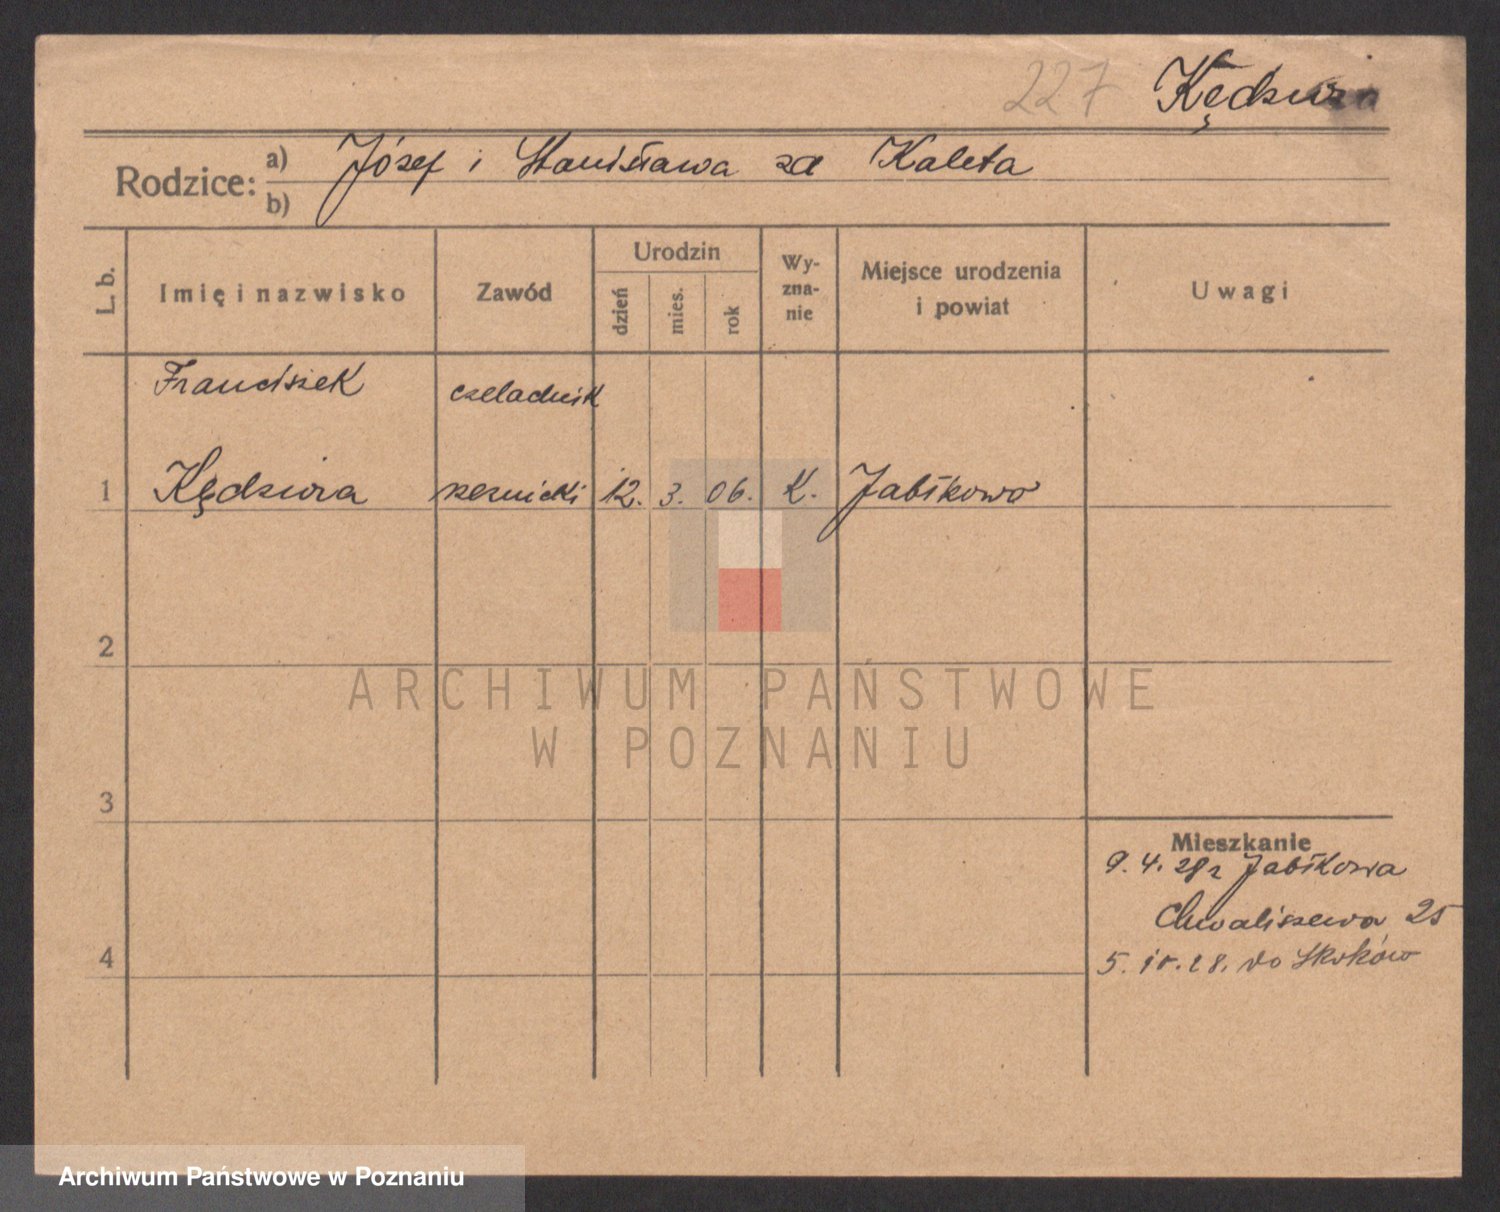 227 Kędziora
Rodzice: a) Józef i Stanisława za Kaleta
b)
L. b.
Imię i nazwisko
Zawód
Urodzin
dzień
mies.
rok
Wy-
zna-
nie
Miejsce urodzenia
i powiat
Uwagi
Franciszek czeladnik
1 Kędziora rzeźnicki 12. 3. 06. K. Jabłkowo
2
ARCHIWUM PAŃSTWOWE
W POZNANIU
3
Mieszkanie
9. 4. 28 r Jabłkowa
Chwaliszewo 25
4
5. 10. 28. do Skoków
Archiwum Państwowe w Poznaniu